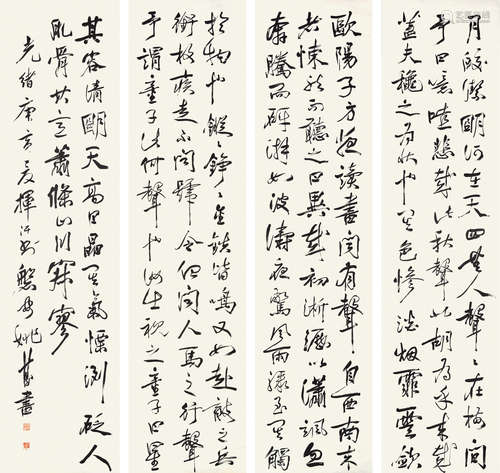 月皎潔明河在天四無人聲聲在樹間
予曰噫嘻悲哉此秋聲也胡為乎來哉
蓋夫穐之為狀也其色慘淡烟霏雲斂
歐陽子方夜讀書聞有聲自西南來
者悚然而聽之曰異哉初淅瀝以瀟颯忽
奔騰而砰湃如波濤夜驚風雨驟至其觸
於物也鏦鏦錚錚金鐵皆鳴又如赴敵之兵
銜枚疾走不聞號令但聞人馬之行聲
予謂童子此何聲也汝出視之童子曰星
其容清明天高日晶其氣慄冽砭人
肌骨其意蕭條山川寂寥
光緒庚寅夏揮汗 姚 書